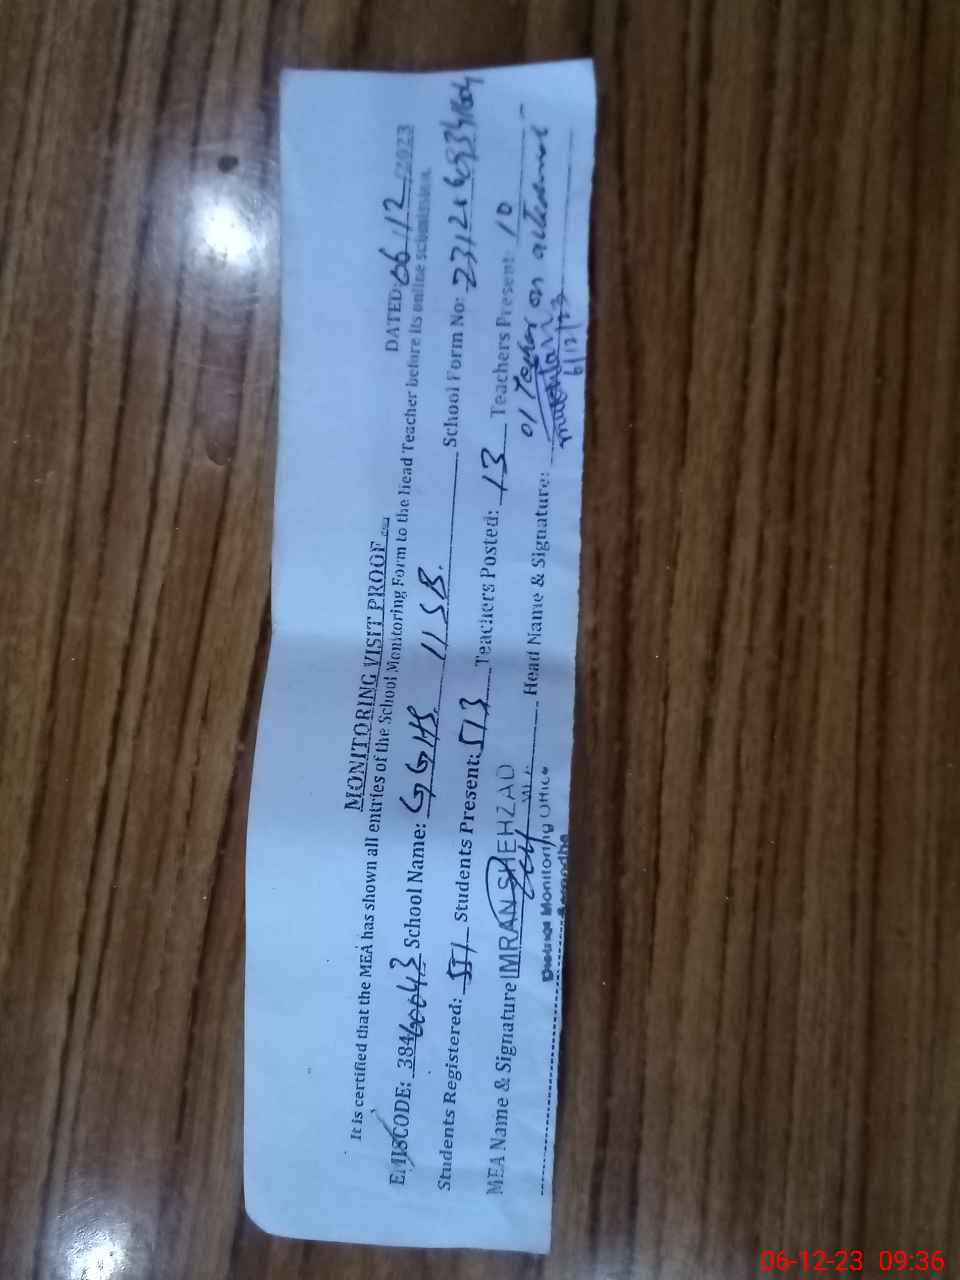 MONITORING VISIT PROOF
DATED: 06/12/2023
It is certified that the MEA has shown all entries of the School Monitoring Form to the Head Teacher before its online submission.
EMISCODE: 38460043 School Name: GGHS 11 SB. School Form No:
Students Registered: 551 Students Present: 513 Teachers Posted: 13 Teachers Present: 10
01 Teacher on
MEA Name & Signature IMRAN SHEHZAD Head Name & Signature:
6/12/23
District Monitoring Office
06-12-23 09:36